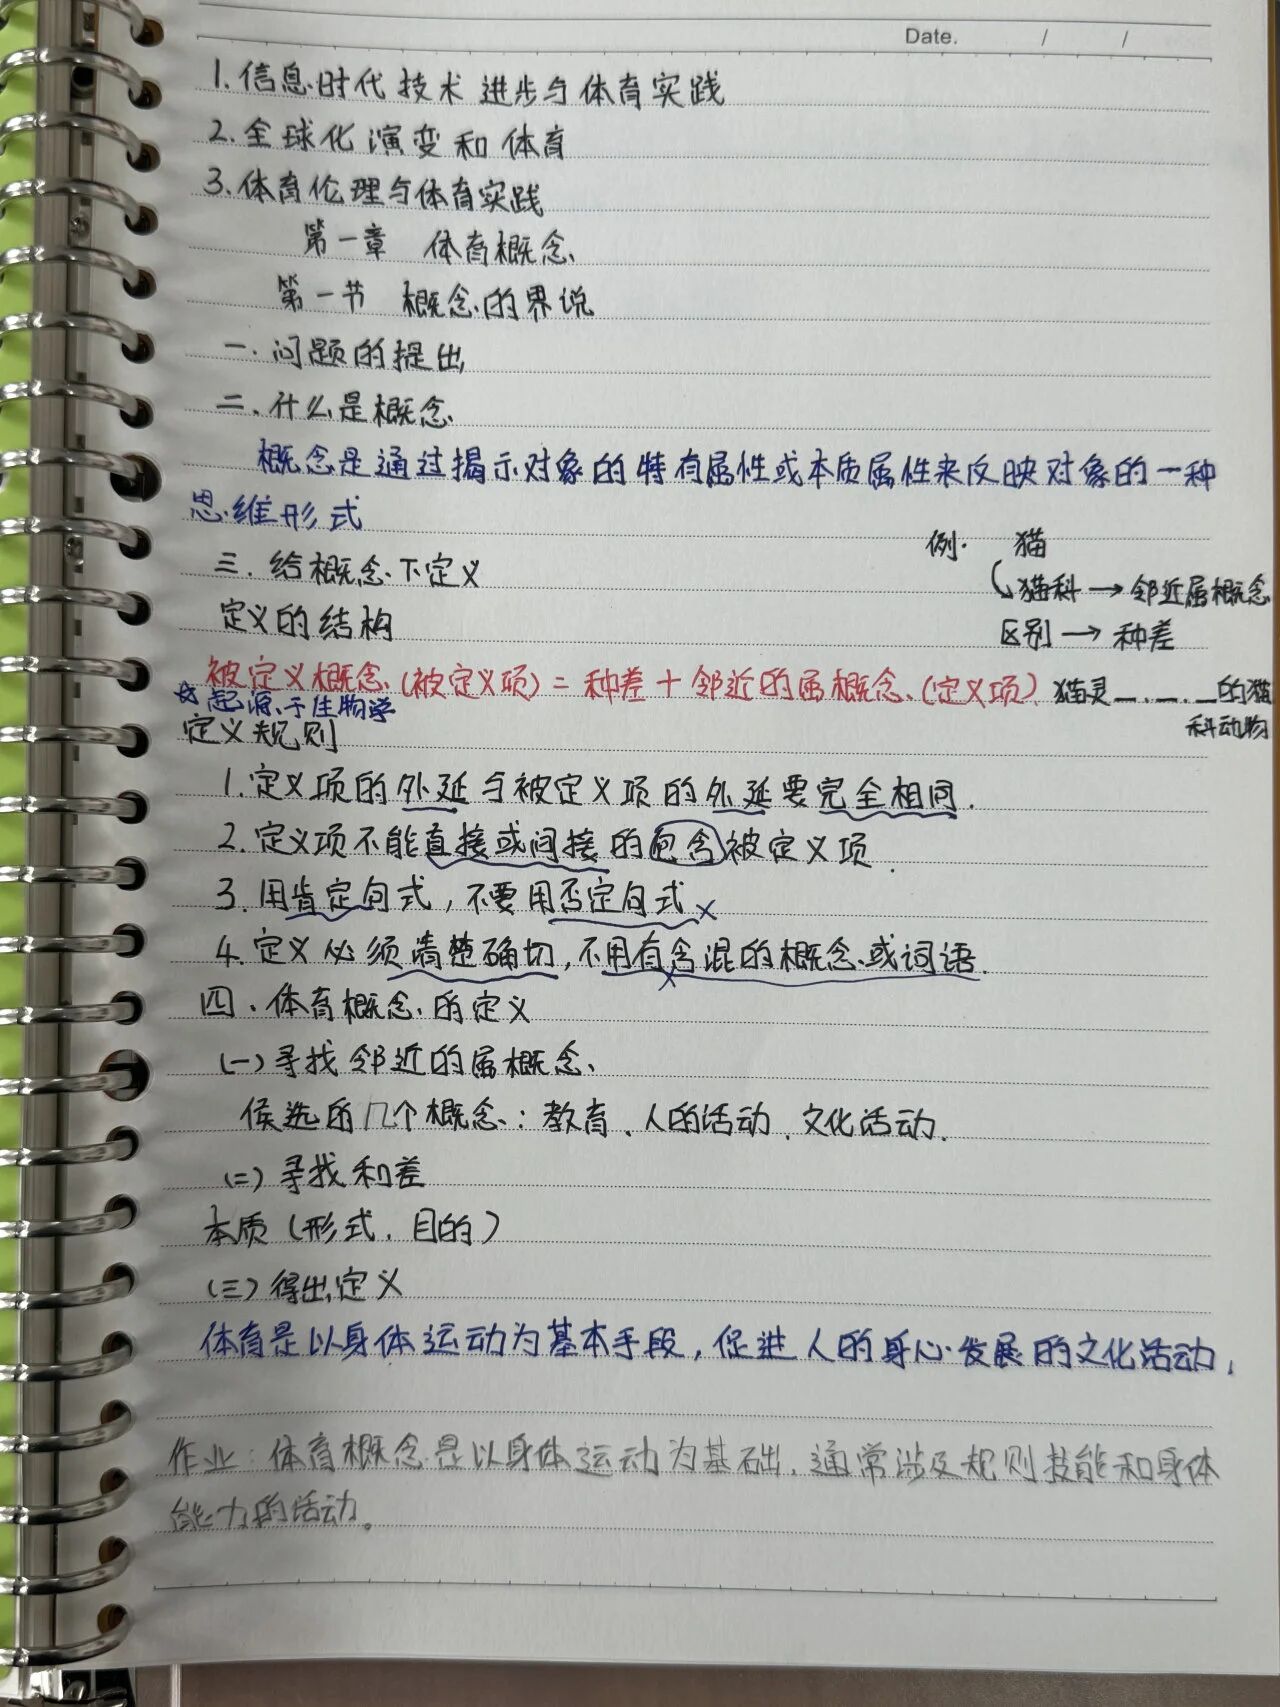 Date. / /
1.信息时代技术进步与体育实践
2.全球化演变和体育
3.体育伦理与体育实践
第一章 体育概念
第一节 概念的界说
一.问题的提出
二.什么是概念
概念是通过揭示对象的特有属性或本质属性来反映对象的一种
思维形式
例. 猫
三.给概念下定义
猫科→邻近属概念
定义的结构
区别→种差
被定义概念(被定义项)=种差+邻近的属概念(定义项)
猫灵_._._的猫
科动物
☆起源于生物学
定义规则
1.定义项的外延与被定义项的外延要完全相同.
2.定义项不能直接或间接的包含被定义项.
3.用肯定句式,不要用否定句式×
4.定义必须清楚确切,不用有含混的概念或词语.
×
四.体育概念的定义
(一)寻找邻近的属概念
候选的几个概念:教育、人的活动、文化活动.
(二)寻找种差
本质(形式,目的)
(三)得出定义
体育是以身体运动为基本手段,促进人的身心发展的文化活动,
作业:体育概念是以身体运动为基础,通常涉及规则技能和身体
能力的活动。